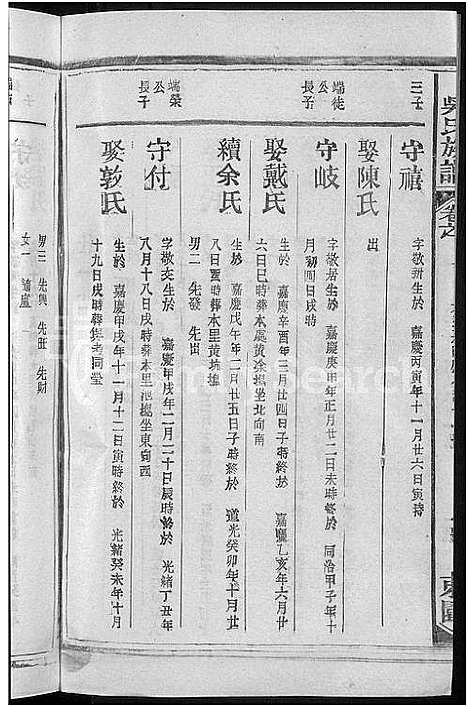 吳氏族譜
卷之
三子
守禧
字敬新生於 嘉慶丙寅年十一月廿六日寅時
娶陳氏
出
端徒公長子
守岐
字敬居生於 嘉慶庚申年正月廿二日未時終於 同治甲子年十
月初四日戌時
娶戴氏
生於 嘉慶辛酉年三月廿四日子時終於 嘉慶乙亥年六月廿
六日巳時葬本處黃涂塭坐北向南
續余氏
生於 嘉慶戊午年二月廿五日子時終於 道光癸卯年十月廿
八日寅時葬本里黃坑塭
男二 先發 先出
端榮公長子
守付
字敬交生於 嘉慶甲戌年二月二十日辰時終於 光緒丁丑年
八月十八日戌時葬本里池塭坐東向西
娶敦氏
生於 嘉慶甲戌年十一月十二日寅時終於 光緒癸未年十月
十九日戌時葬與考同塋
男三 先興 先旺 先財
女一